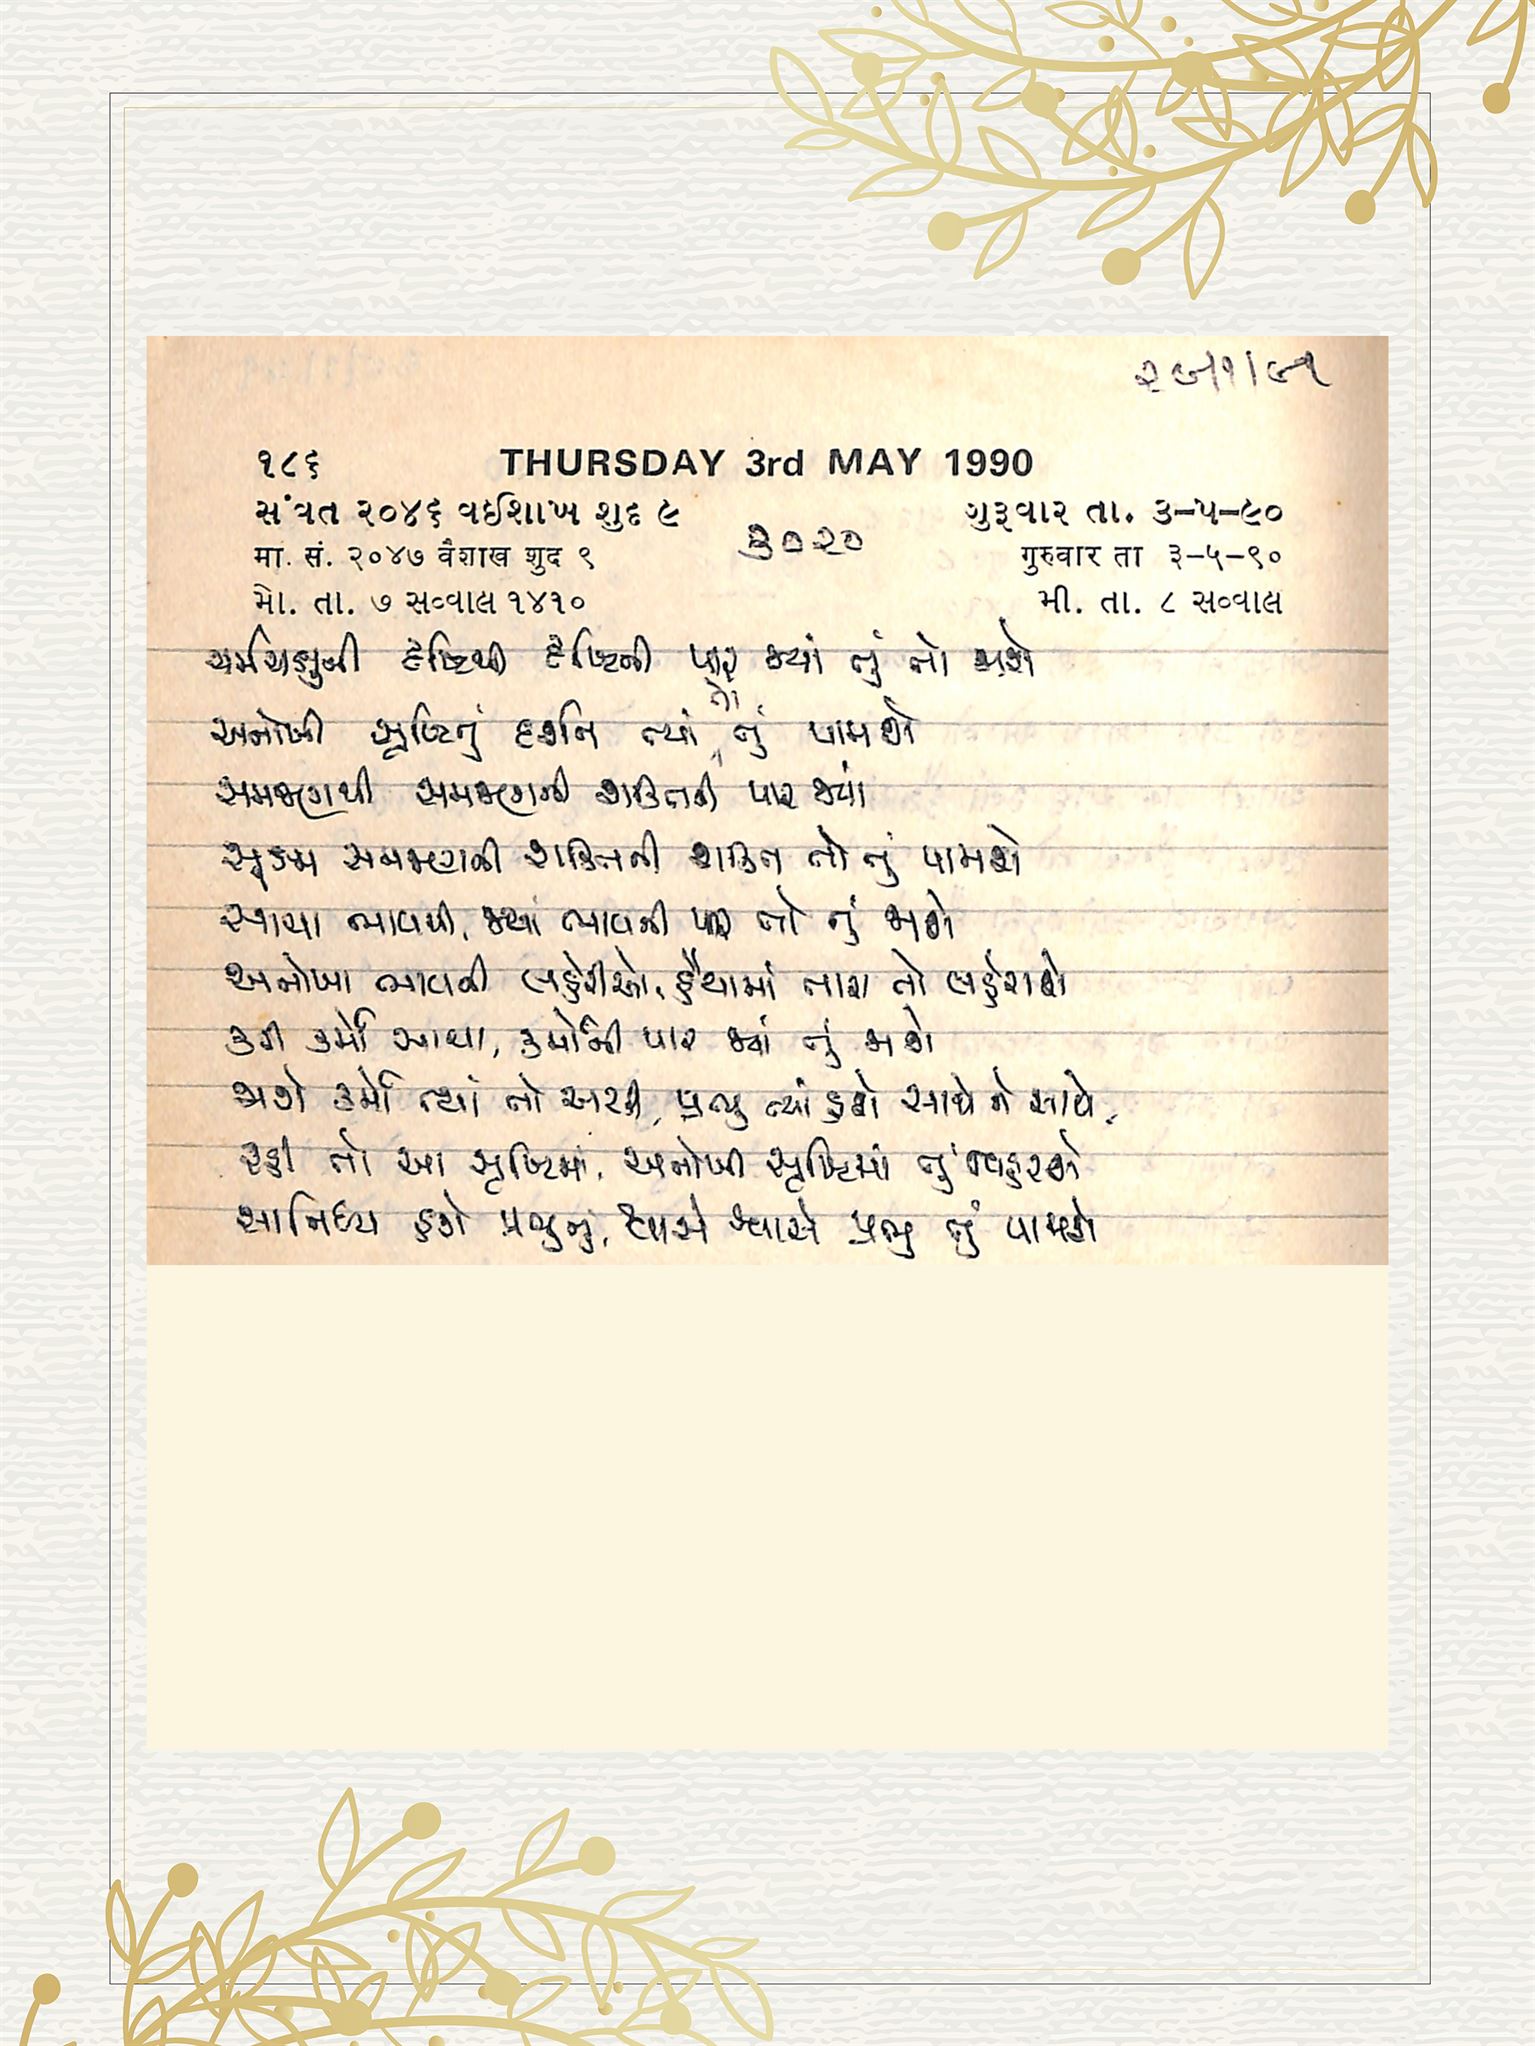 ૨૯/૧/૯૧
૧૮૬ THURSDAY 3rd MAY 1990
સંવત ૨૦૪૬ વઈશાખ શુદ ૯ ગુરૂવાર તા. ૩-૫-૯૦
૩૦૨૦
मा. सं. २०४७ वैशाख शुद ९ गुरुवार ता ३-५-९०
મો. તા. ૭ સવ્વાલ ૧૪૧૦ મી. તા. ૮ સવ્વાલ
ચર્મચક્ષુની દૃષ્ટિથી દૃષ્ટિની પાર જ્યાં તું તો જાશે
અનોખી સૃષ્ટિનું દર્શન ત્યાં તો તું પામશે
સમજણથી સમજણની શક્તિની પાર જ્યાં
સૂક્ષ્મ સમજણની શક્તિની શક્તિ તો તું પામશે
આવ્યા ભાવથી, જ્યાં ભાવની પાર તો તું જાશે
અનોખા ભાવની લહેરીઓ, હૈયામાં તારા તો લહેરાશે
કરી કર્મો આવ્યા, કર્મોની પાર જ્યાં તું જાશે
જાશે કર્મો ત્યાં તો અટકી, પ્રભુ ત્યાં હશે સાથે ને સાથે
રહી તો આ સૃષ્ટિમાં, અનોખી સૃષ્ટિમાં તું વિહરશે
સાનિધ્ય હશે પ્રભુનું, શ્વાસે શ્વાસે પ્રભુ તું પામશે